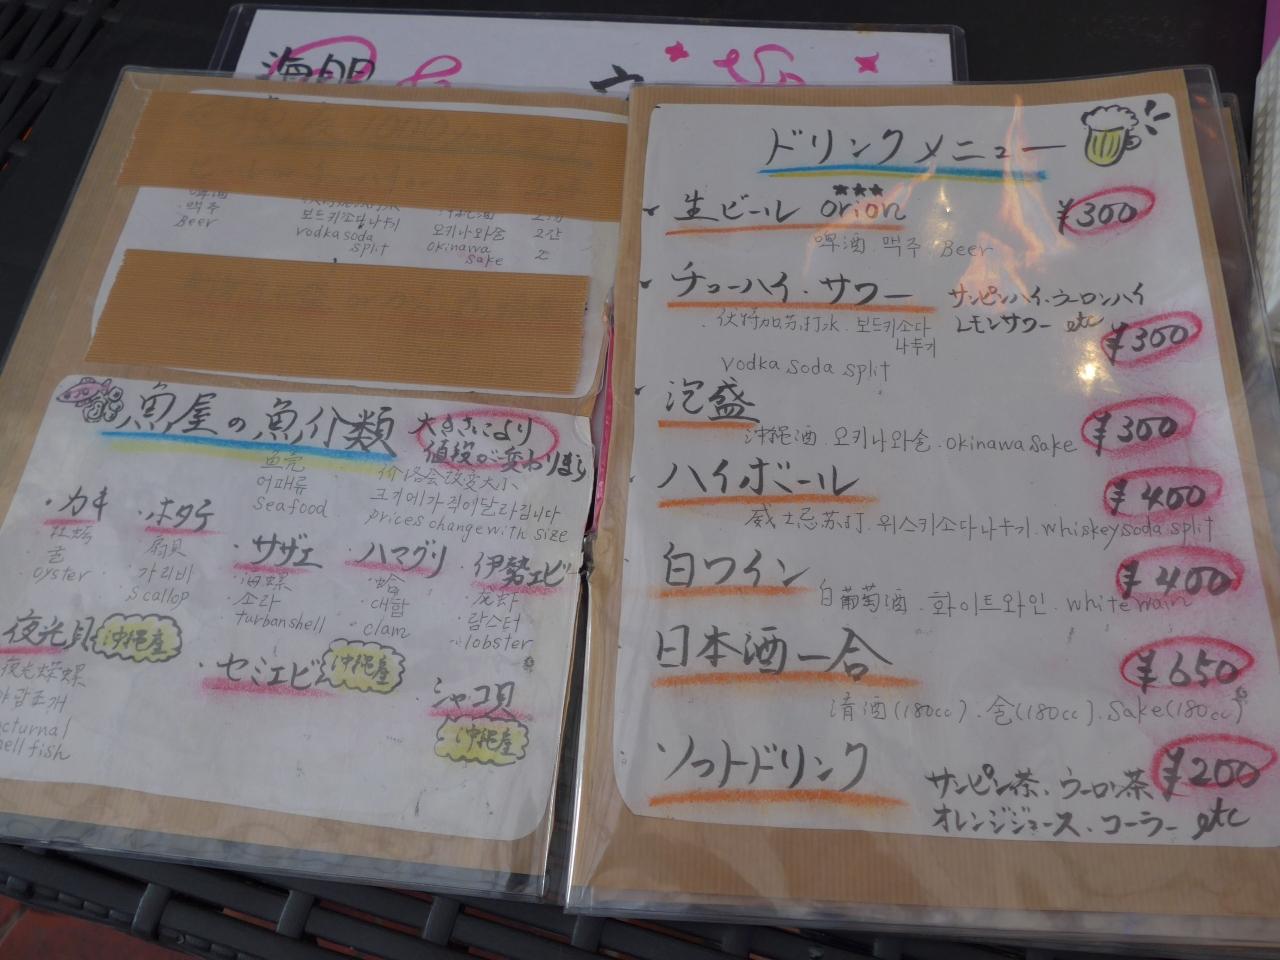 海
啤酒
맥주
Beer
보드키소다나누기
vodka soda
split
오키나와술
okinawa
sake
2잔
魚屋の魚介類
大きさにより
値段が変わります
鱼壳
어패류
Seafood
价格会改变大小
크기에가격이달라집니다
prices change with size
・カキ
牡蛎
굴
oyster
・ホタテ
扇贝
가리비
Scallop
・サザエ
海螺
소라
turbanshell
・ハマグリ
蛤
대합
clam
・伊勢エビ
龙虾
랍스터
lobster
夜光貝
沖縄産
夜光蝾螺
야광조개
nocturnal
shell fish
・セミエビ
沖縄産
・シャコ貝
沖縄産
ドリンクメニュー
生ビール orion ¥300
啤酒 맥주 Beer
チューハイ・サワー
サンピンハイ・ウーロンハイ
レモンサワー etc
¥300
伏特加苏打水. 보드키소다
나누기
vodka soda split
泡盛 ¥300
沖縄酒. 오키나와술. okinawa sake
ハイボール ¥400
威士忌苏打. 위스키소다나누기. whiskey soda split
白ワイン ¥400
白葡萄酒. 화이트와인. white wain
日本酒一合 ¥650
清酒(180cc). 술(180cc). Sake(180cc)
ソフトドリンク ¥200
サンピン茶・ウーロン茶
オレンジジュース・コーラー etc